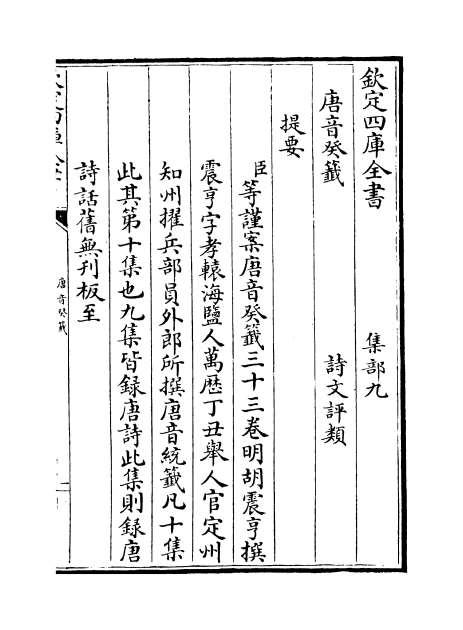 欽定四庫全書　集部九
唐音癸籤　詩文評類
提要
臣等謹案唐音癸籤三十三卷明胡震亨撰
震亨字孝轅海鹽人萬歴丁丑舉人官定州
知州擢兵部員外郎所撰唐音統籤凡十集
此其第十集也九集皆録唐詩此集則録唐
詩話舊無刊板至
唐音癸籤